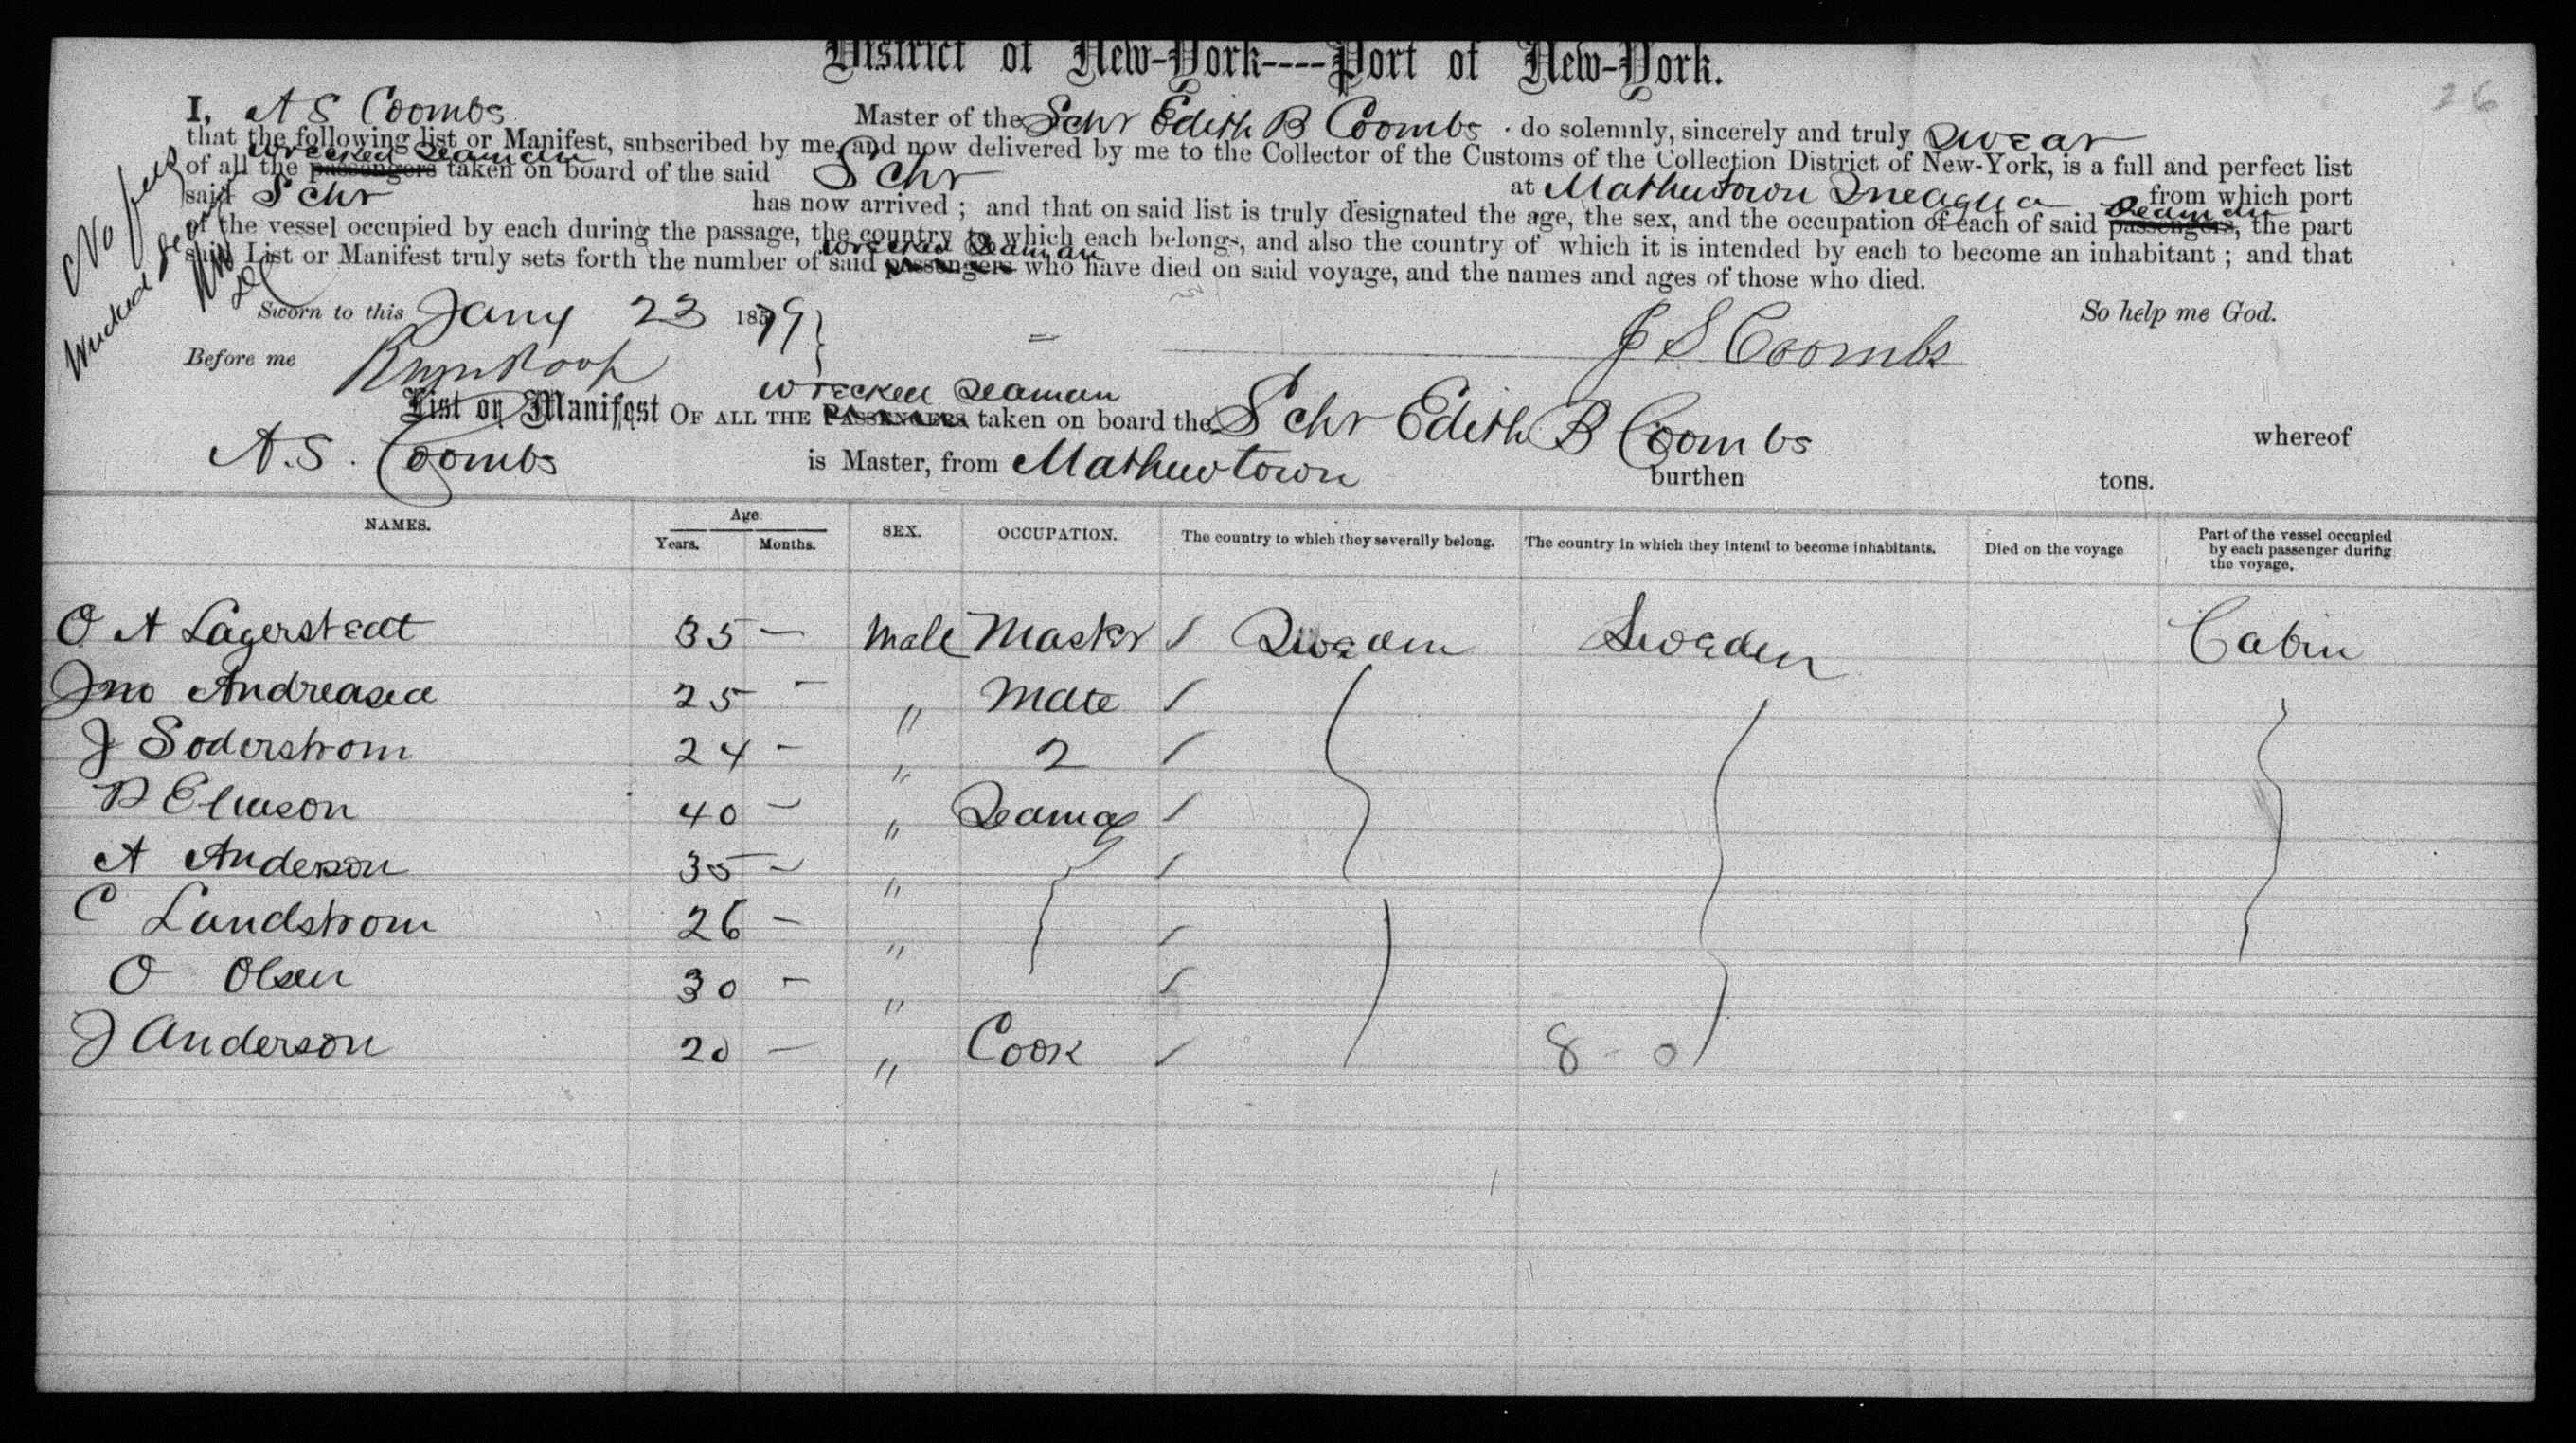 District of New-York----Port of New-York.
26
I, A S Coombs Master of the Schr Edith B Coombs . do solemnly, sincerely and truly swear
that the following list or Manifest, subscribed by me, and now delivered by me to the Collector of the Customs of the Collection District of New-York, is a full and perfect list
wrecked seaman
of all the passengers taken on board of the said Schr at Mathewtown Ineagua from which port
said Schr has now arrived ; and that on said list is truly designated the age, the sex, and the occupation of each of said passengers, the part
seaman
of the vessel occupied by each during the passage, the country to which each belongs, and also the country of which it is intended by each to become an inhabitant ; and that
wrecked seaman
said List or Manifest truly sets forth the number of said passengers who have died on said voyage, and the names and ages of those who died.
No fees
Wrecked
Sworn to this Jany 23 1879 So help me God.
Before me J S Coombs
wrecked seaman
List or Manifest OF ALL THE PASSENGERS taken on board the Schr Edith B Coombs whereof
A.S. Coombs is Master, from Mathewtown burthen tons.
NAMES. Age. SEX. OCCUPATION. The country to which they severally belong. The country in which they intend to become inhabitants. Died on the voyage Part of the vessel occupied by each passenger during the voyage.
Years. Months.
O A Lagerstedt 35 — Male Master / Sweden Sweden Cabin
Jno Andreasen 25 - " Mate /
J Soderstrom 24 - " 2 /
B Eliason 40 - " Seaman /
A Anderson 35 - " /
C Landstrom 26 - " /
O Olsen 30 - " /
J Anderson 20 - " Cook / 8 - 0